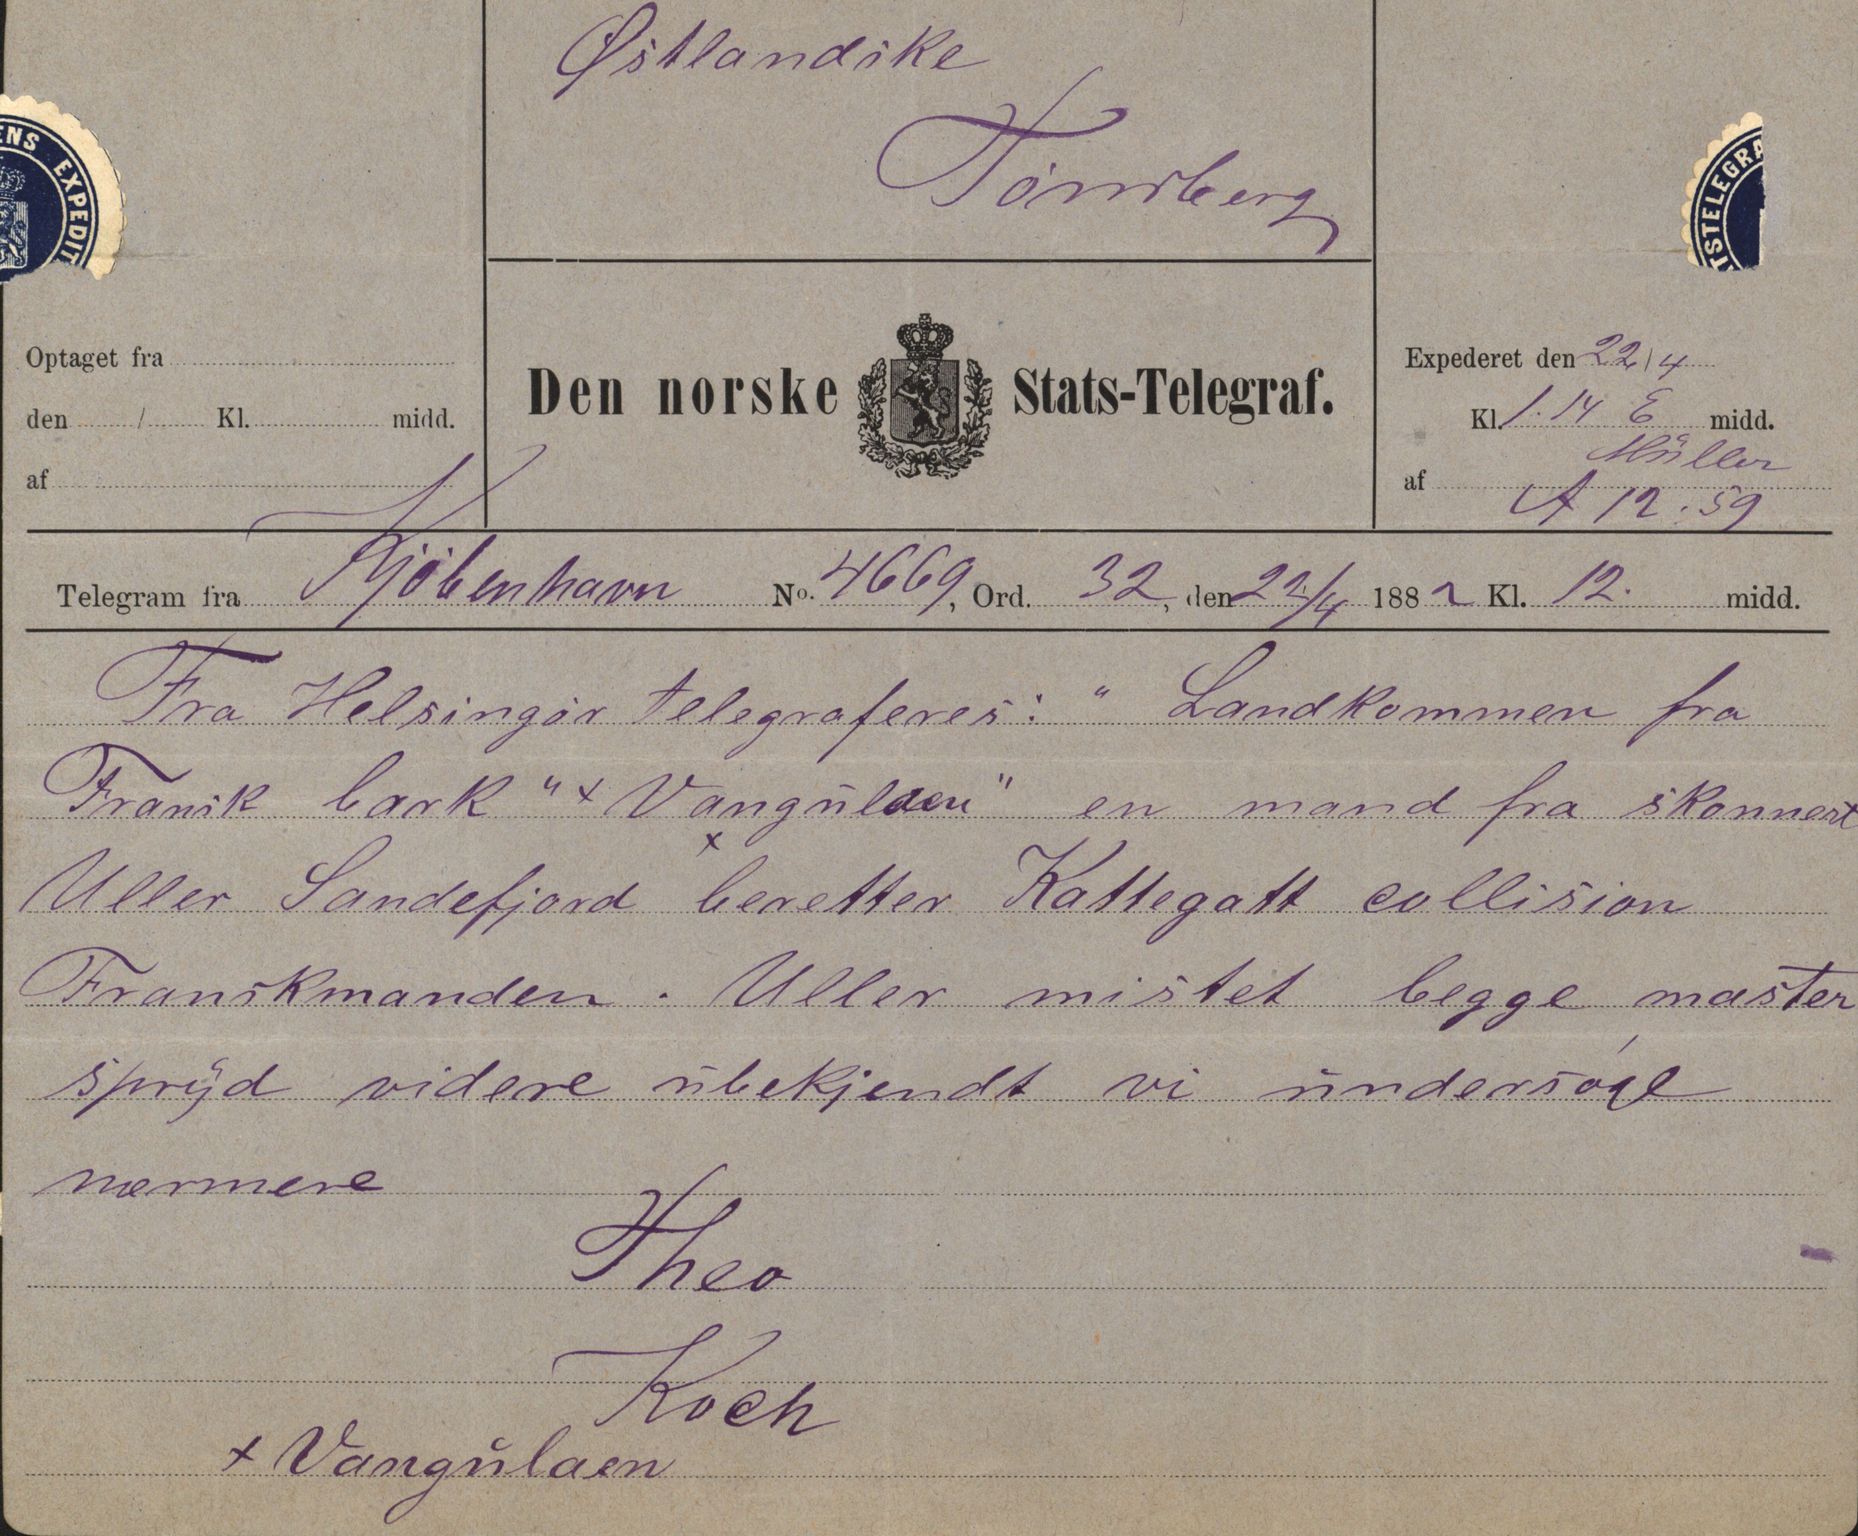 Østlandske
Tønsberg
ENS EXPEDIT
TSTELEGRA
Optaget fra
den / Kl. midd.
af
Den norske Stats-Telegraf.
Expederet den 22/4
Kl. 1.14 E midd.
Müller
af A 12.59
Telegram fra Kjöbenhavn No. 4669, Ord. 32, den 22/4 1882 Kl. 12. midd.
Fra Helsingør telegraferes: " Landkommen fra
Fransk bark "+ Vangulaen" en mand fra skonnert
Uller Sandefjord beretter Kattegatt collision
Franskmanden. Uller mistet begge master
spryd videre ubekjendt vi undersøge
nærmere
Theo
Koch
+ Vangulaen